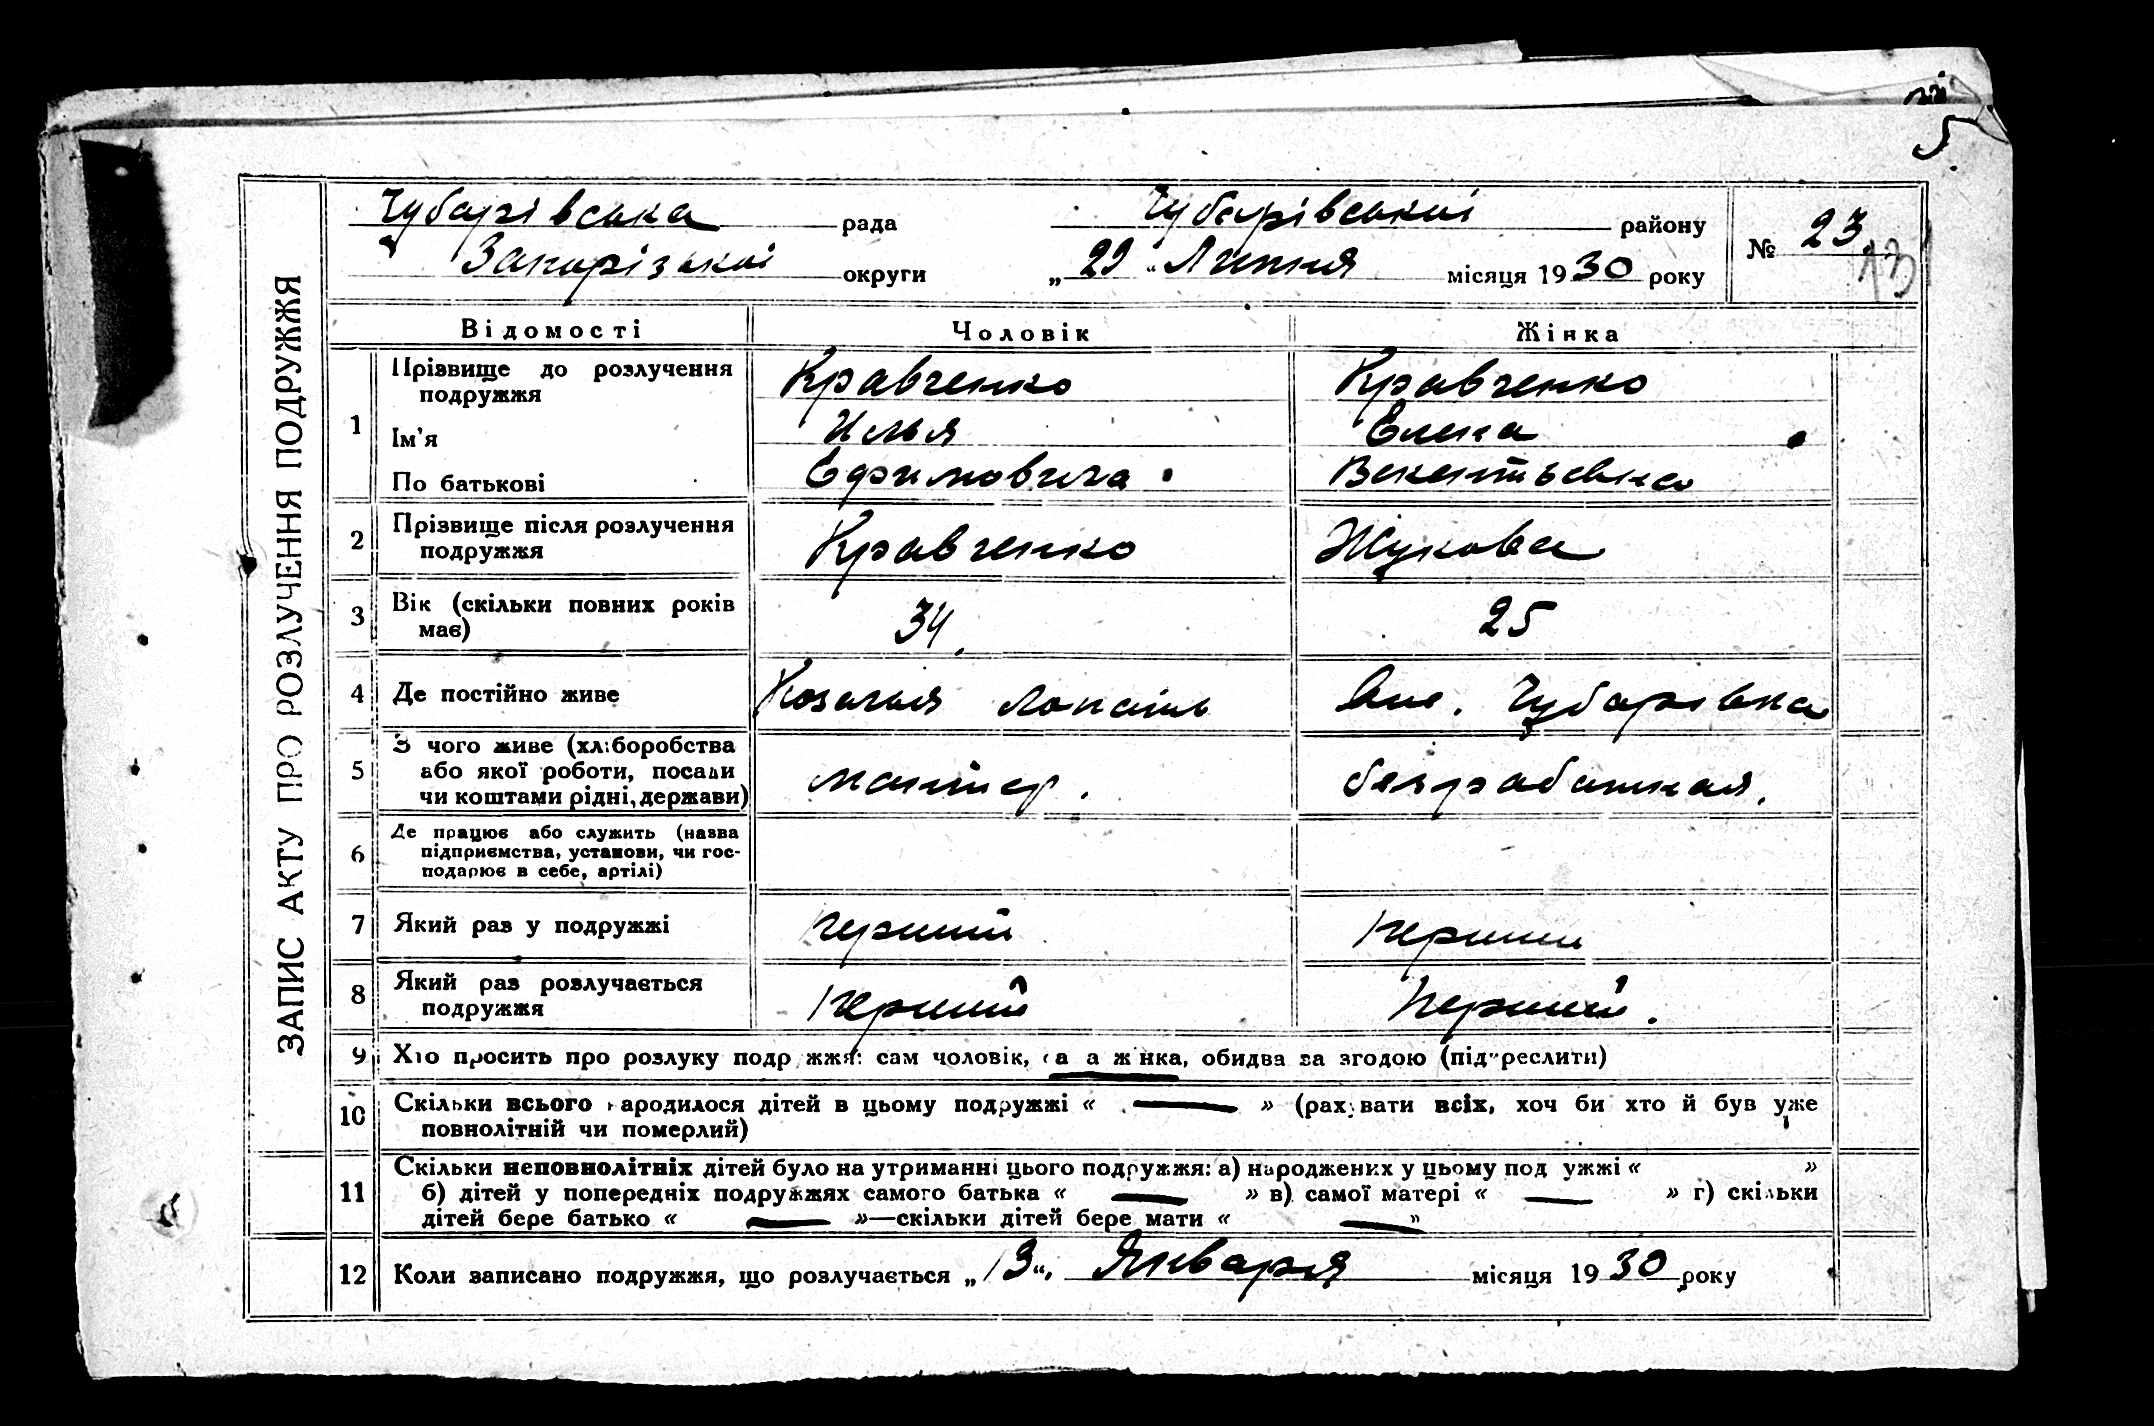 5
ЗАПИС АКТУ ПРО РОЗЛУЧЕННЯ ПОДРУЖЖЯ
Чубарівська рада Чубарівської району № 23
Запорізької округи „29“ Липня місяця 1930 року 13
Відомості Чоловік Жінка
1 Прізвище до розлучення подружжя Кравченко Кравченко
Ім'я Илья Елена
По батькові Ефимовича Викентьевна
2 Прізвище після розлучення подружжя Кравченко Жукова
3 Вік (скільки повних років має) 34 25
4 Де постійно живе Лопань Чубарівка
5 З чого живе (хліборобства або якої роботи, посади чи коштами рідні, держави) монтер. безработная.
6 Де працює або служить (назва підприємства, установи, чи господарює в себе, артілі)
7 Який раз у подружжі перший перший
8 Який раз розлучається подружжя перший перший.
9 Хто просить про розлуку подружжя: сам чоловік, сама жінка, обидва за згодою (підкреслити)
10 Скільки всього народилося дітей в цьому подружжі « — » (рахувати всіх, хоч би хто й був уже
повнолітній чи померлий)
11 Скільки неповнолітніх дітей було на утриманні цього подружжя: а) народжених у цьому подружжі « »
б) дітей у попередніх подружжях самого батька « — » в) самої матері « — » г) скільки
дітей бере батько « — »—скільки дітей бере мати « — »
12 Коли записано подружжя, що розлучається „13“ Января місяця 1930 року